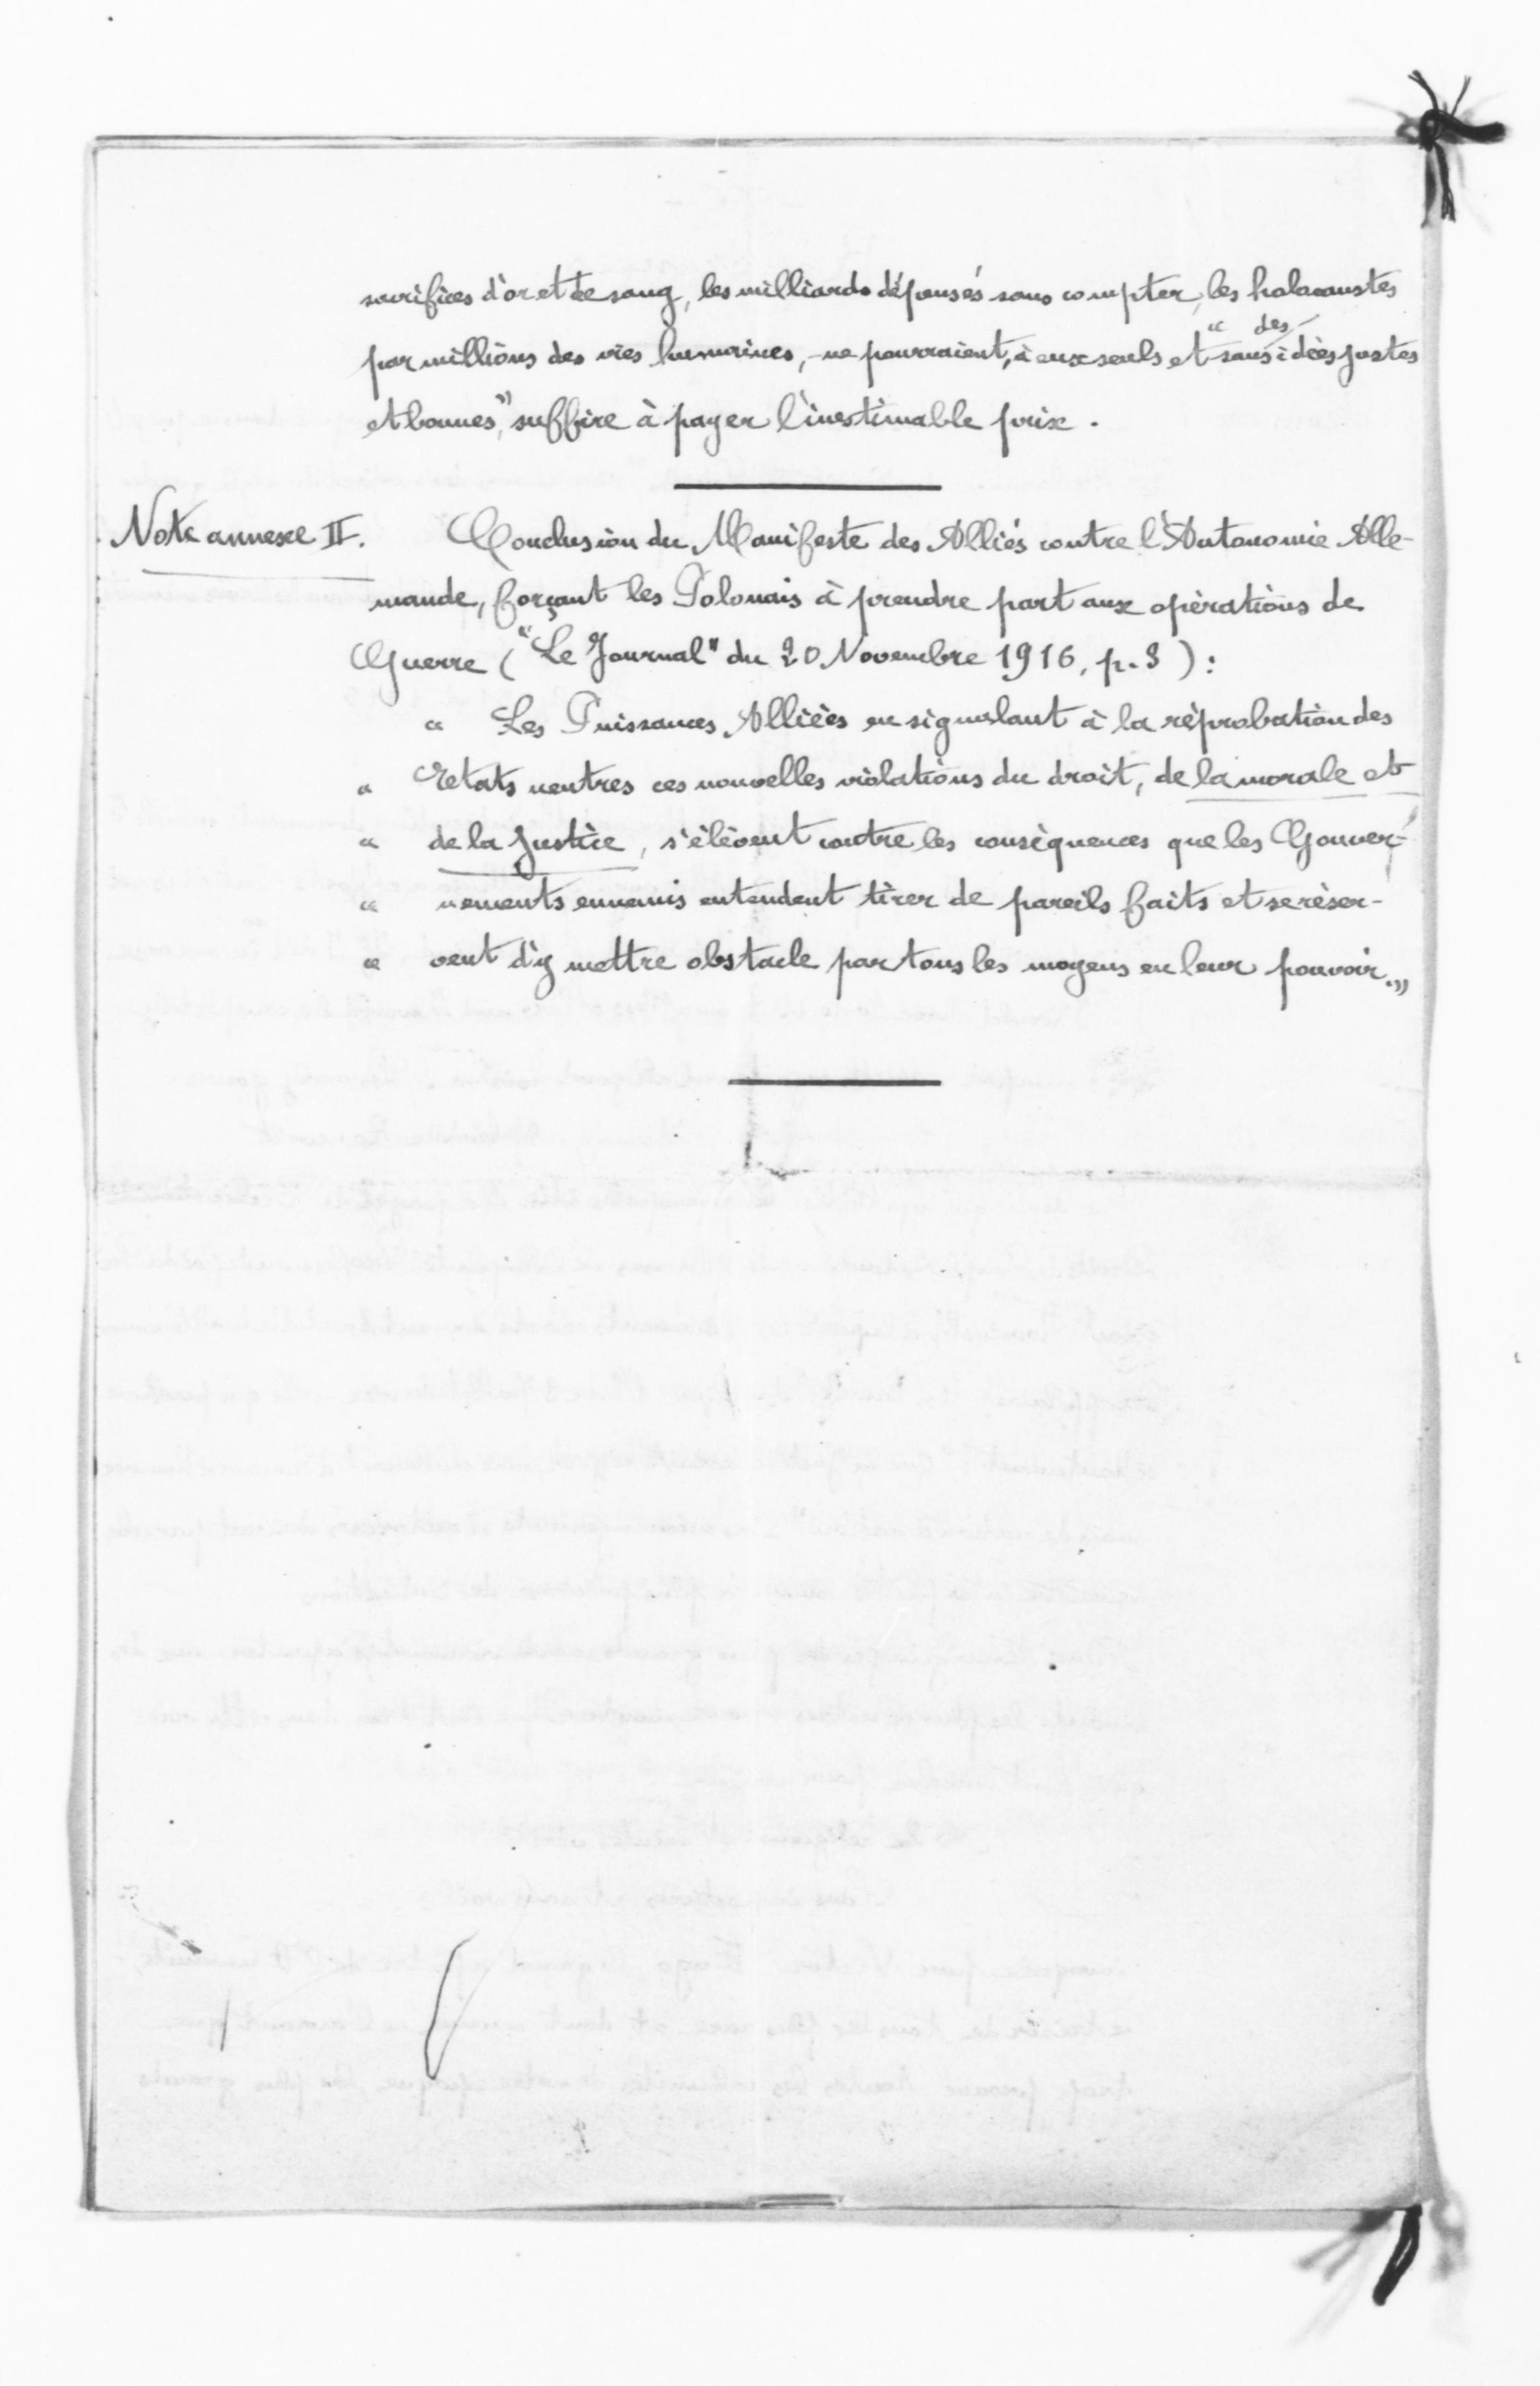 sacrifices d'or et de sang, les milliards dépensés sans compter, les holocaustes
par millions des vies humaines, - ne pourraient, à eux seuls et "sans des idées justes
et bonnes", suffire à payer l'inestimable prix.
Note annexe II. Conclusion du Manifeste des Alliés contre l'Autonomie Alle-
mande, forçant les Polonais à prendre part aux opérations de
Guerre ("Le Journal" du 20 Novembre 1916, p. 3) :
" Les Puissances Alliées en signalant à la réprobation des
" Etats neutres ces nouvelles violations du droit, de la morale et
" de la Justice, s'élèvent contre les conséquences que les Gouver-
" nements ennemis entendent tirer de pareils faits et se réser-
" vent d'y mettre obstacle par tous les moyens en leur pouvoir."